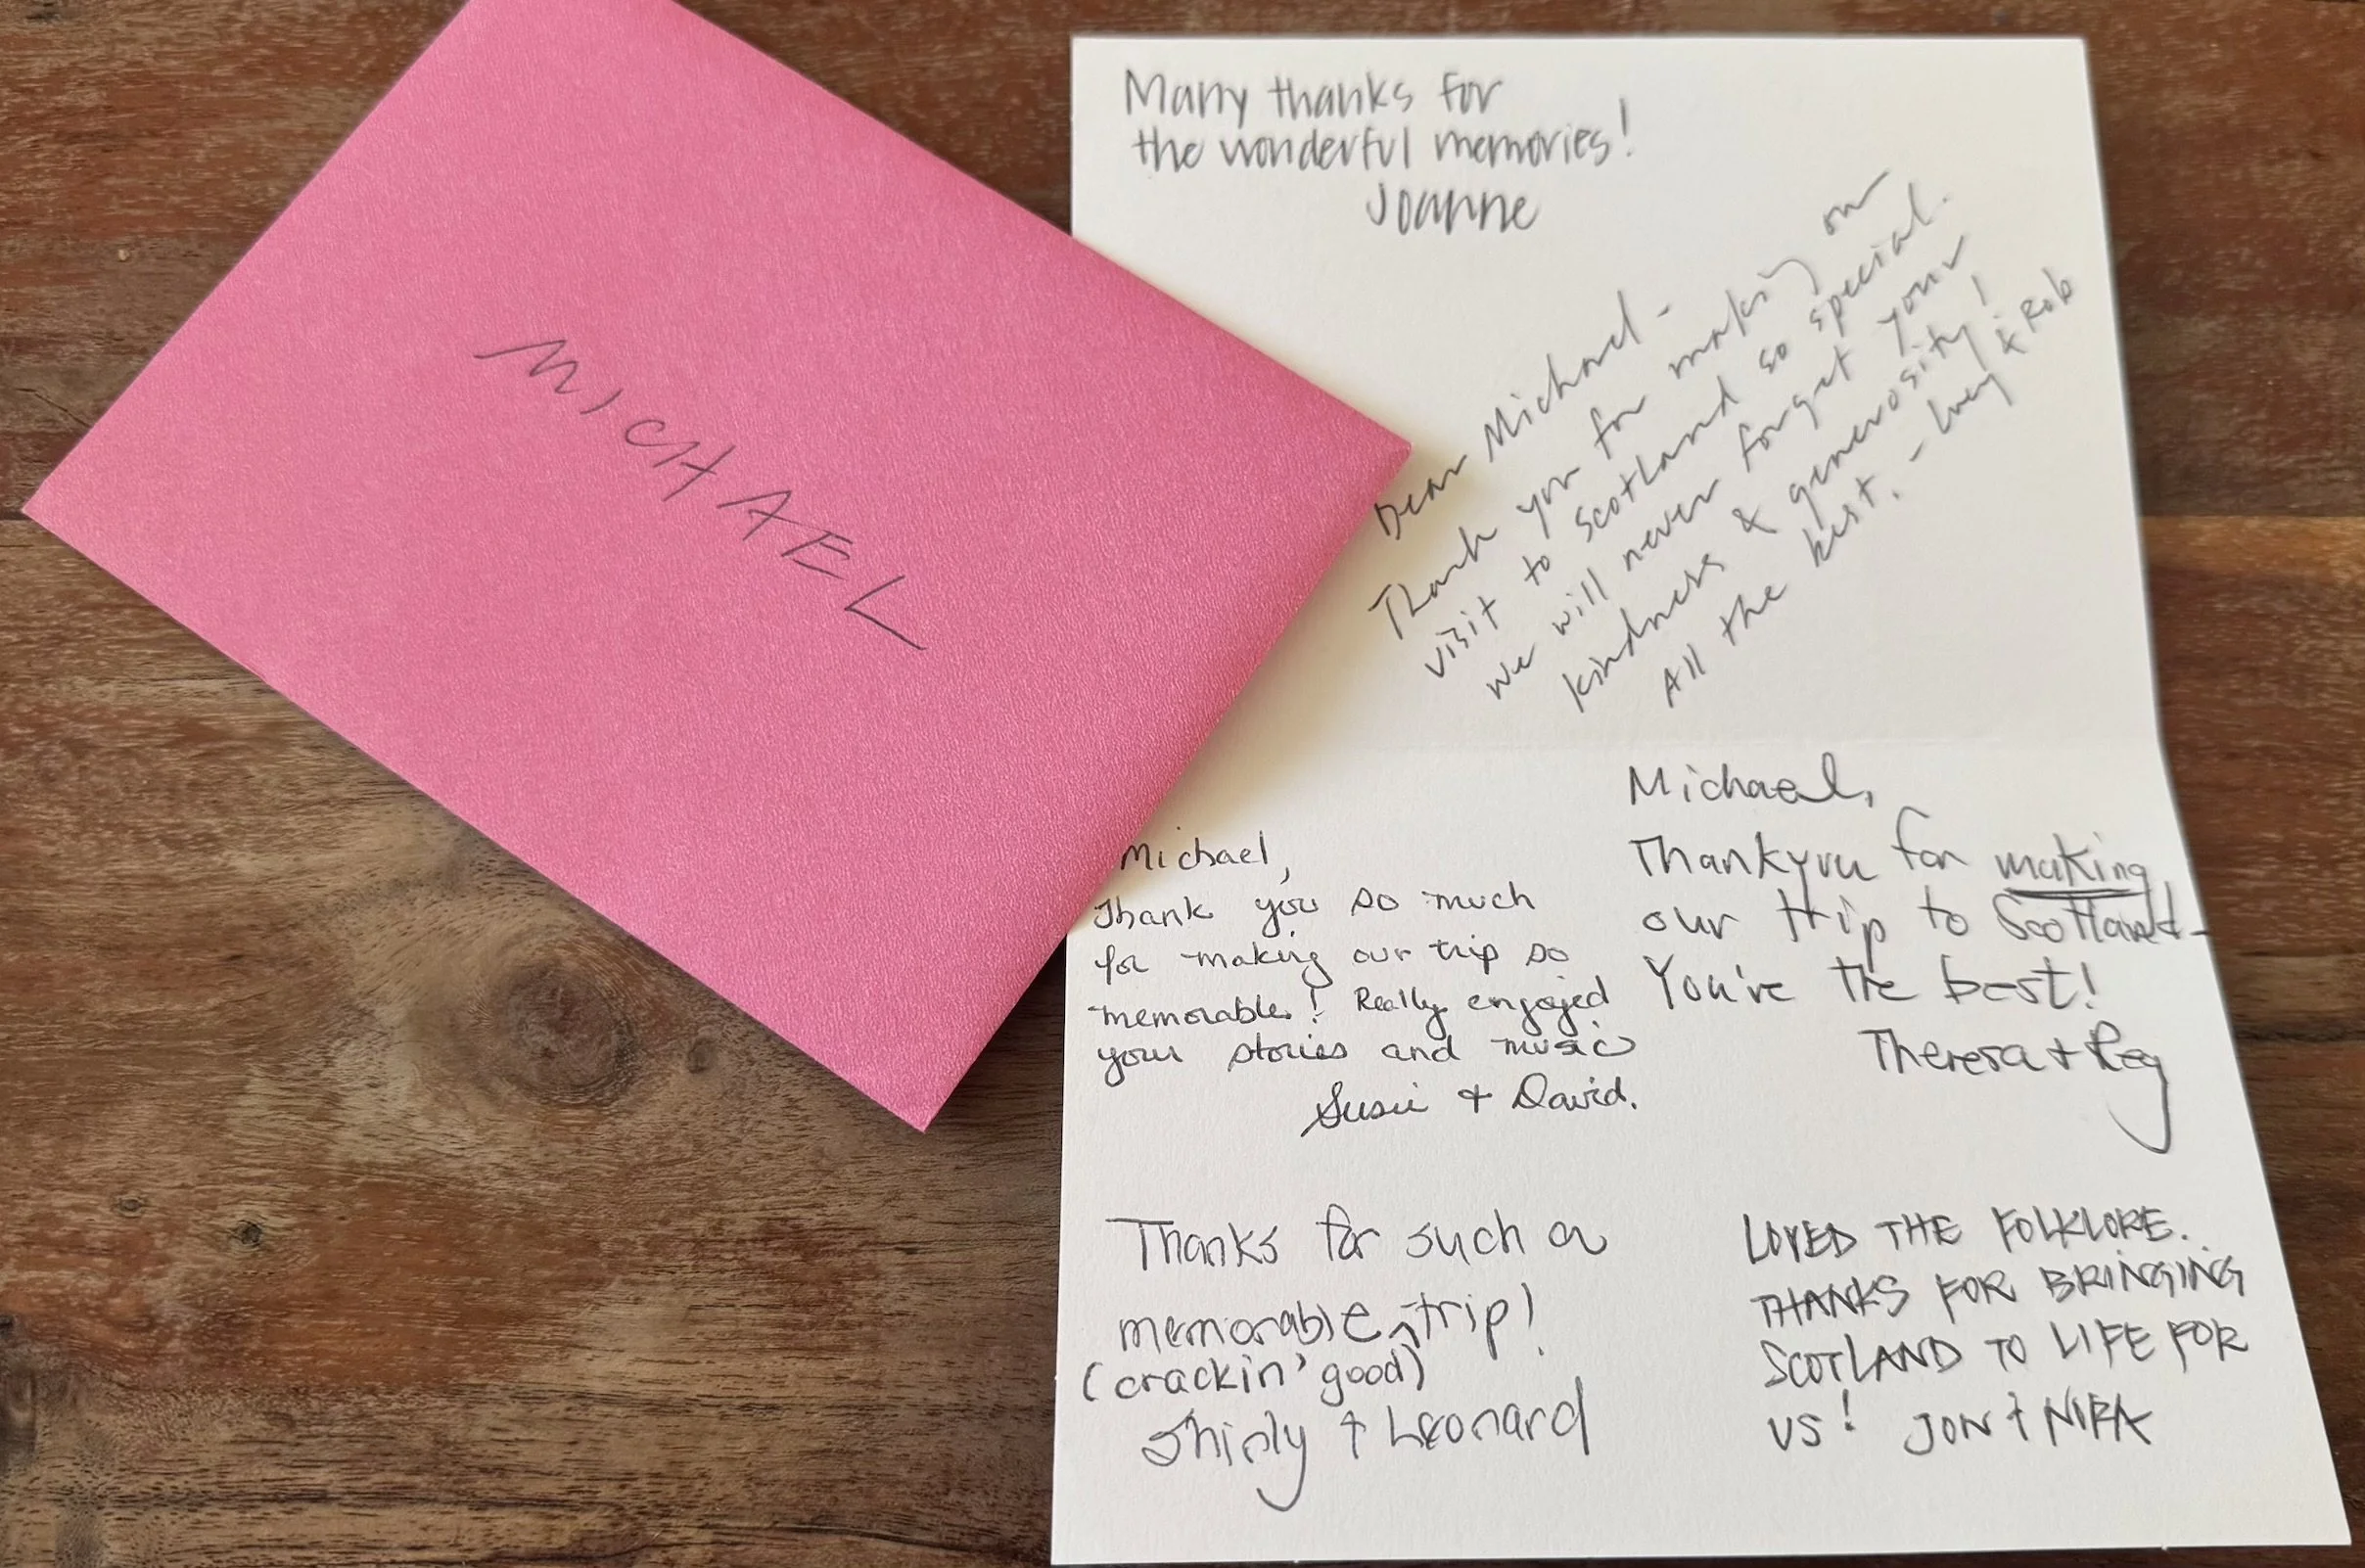 MICHAEL
Many thanks for
the wonderful memories!
Joanne
Dear Michael -
Thank you for making our
visit to Scotland so special.
We will never forget your
kindness & generosity!
All the best. - & Rob
Michael,
Thank you so much
for making our trip so
memorable! Really enjoyed
your stories and music
Susie + David.
Michael,
Thank you for making
our trip to Scotland -
You're the best!
Theresa + Reg
Thanks for such a
memorable ^ trip!
(crackin' good)
Shirly + Leonard
LOVED THE FOLKLORE.
THANKS FOR BRINGING
SCOTLAND TO LIFE FOR
US! JON +